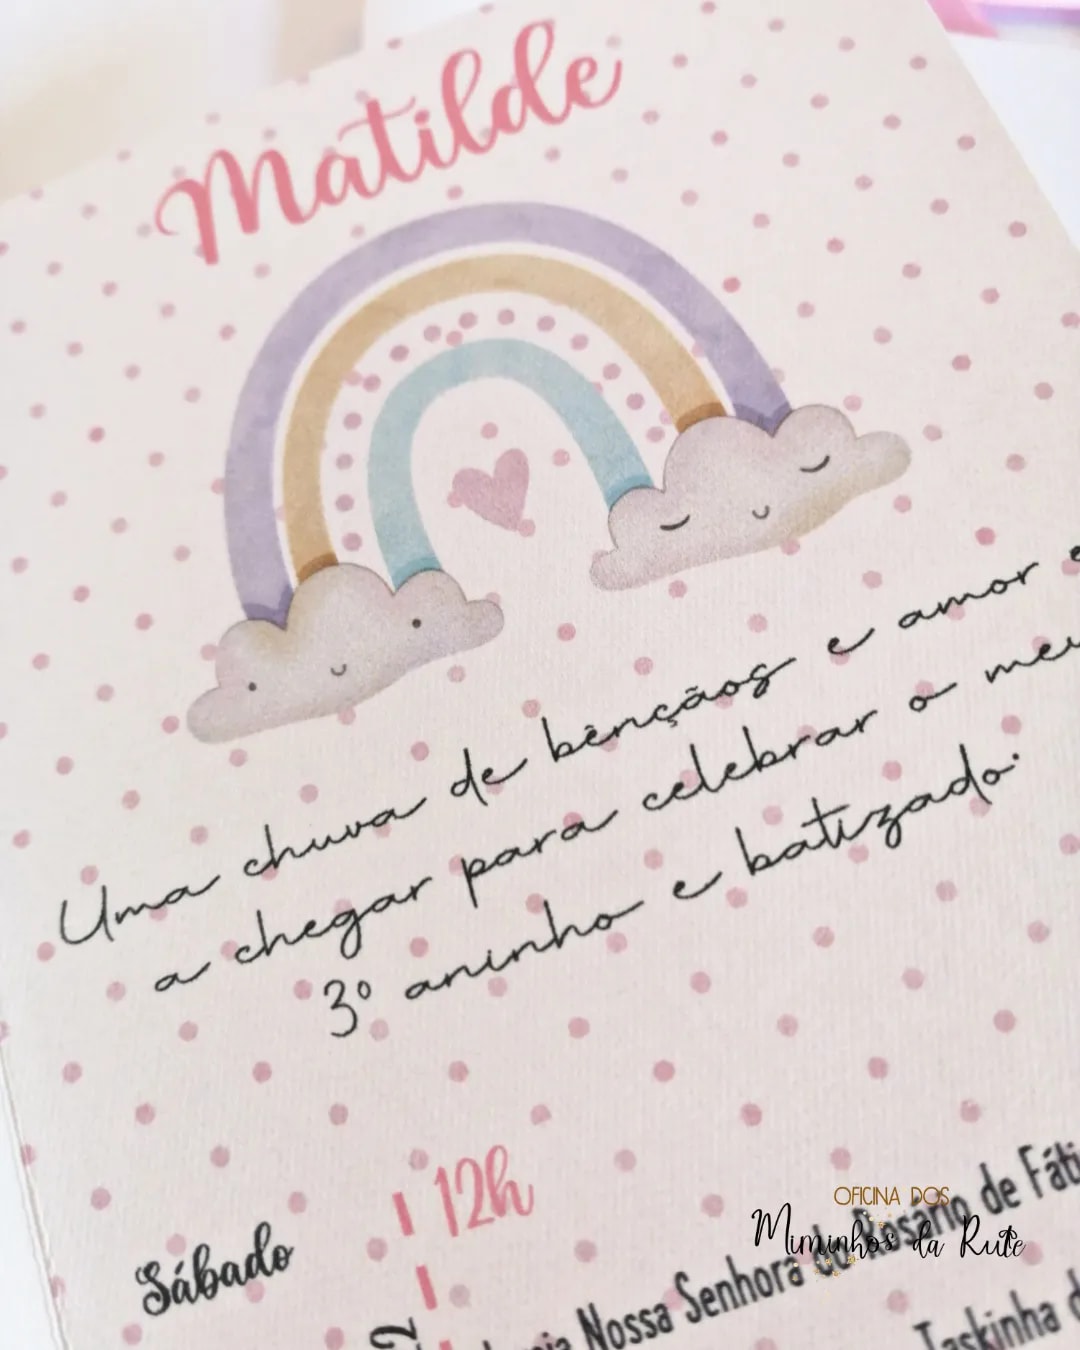 Matilde
Uma chuva de bênçãos e amor
a chegar para celebrar o meu
3º aninho e batizado.
12h
Sábado
Nossa Senhora do Rosário de
Taskinha
OFICINA DOS
Miminhos da Rute